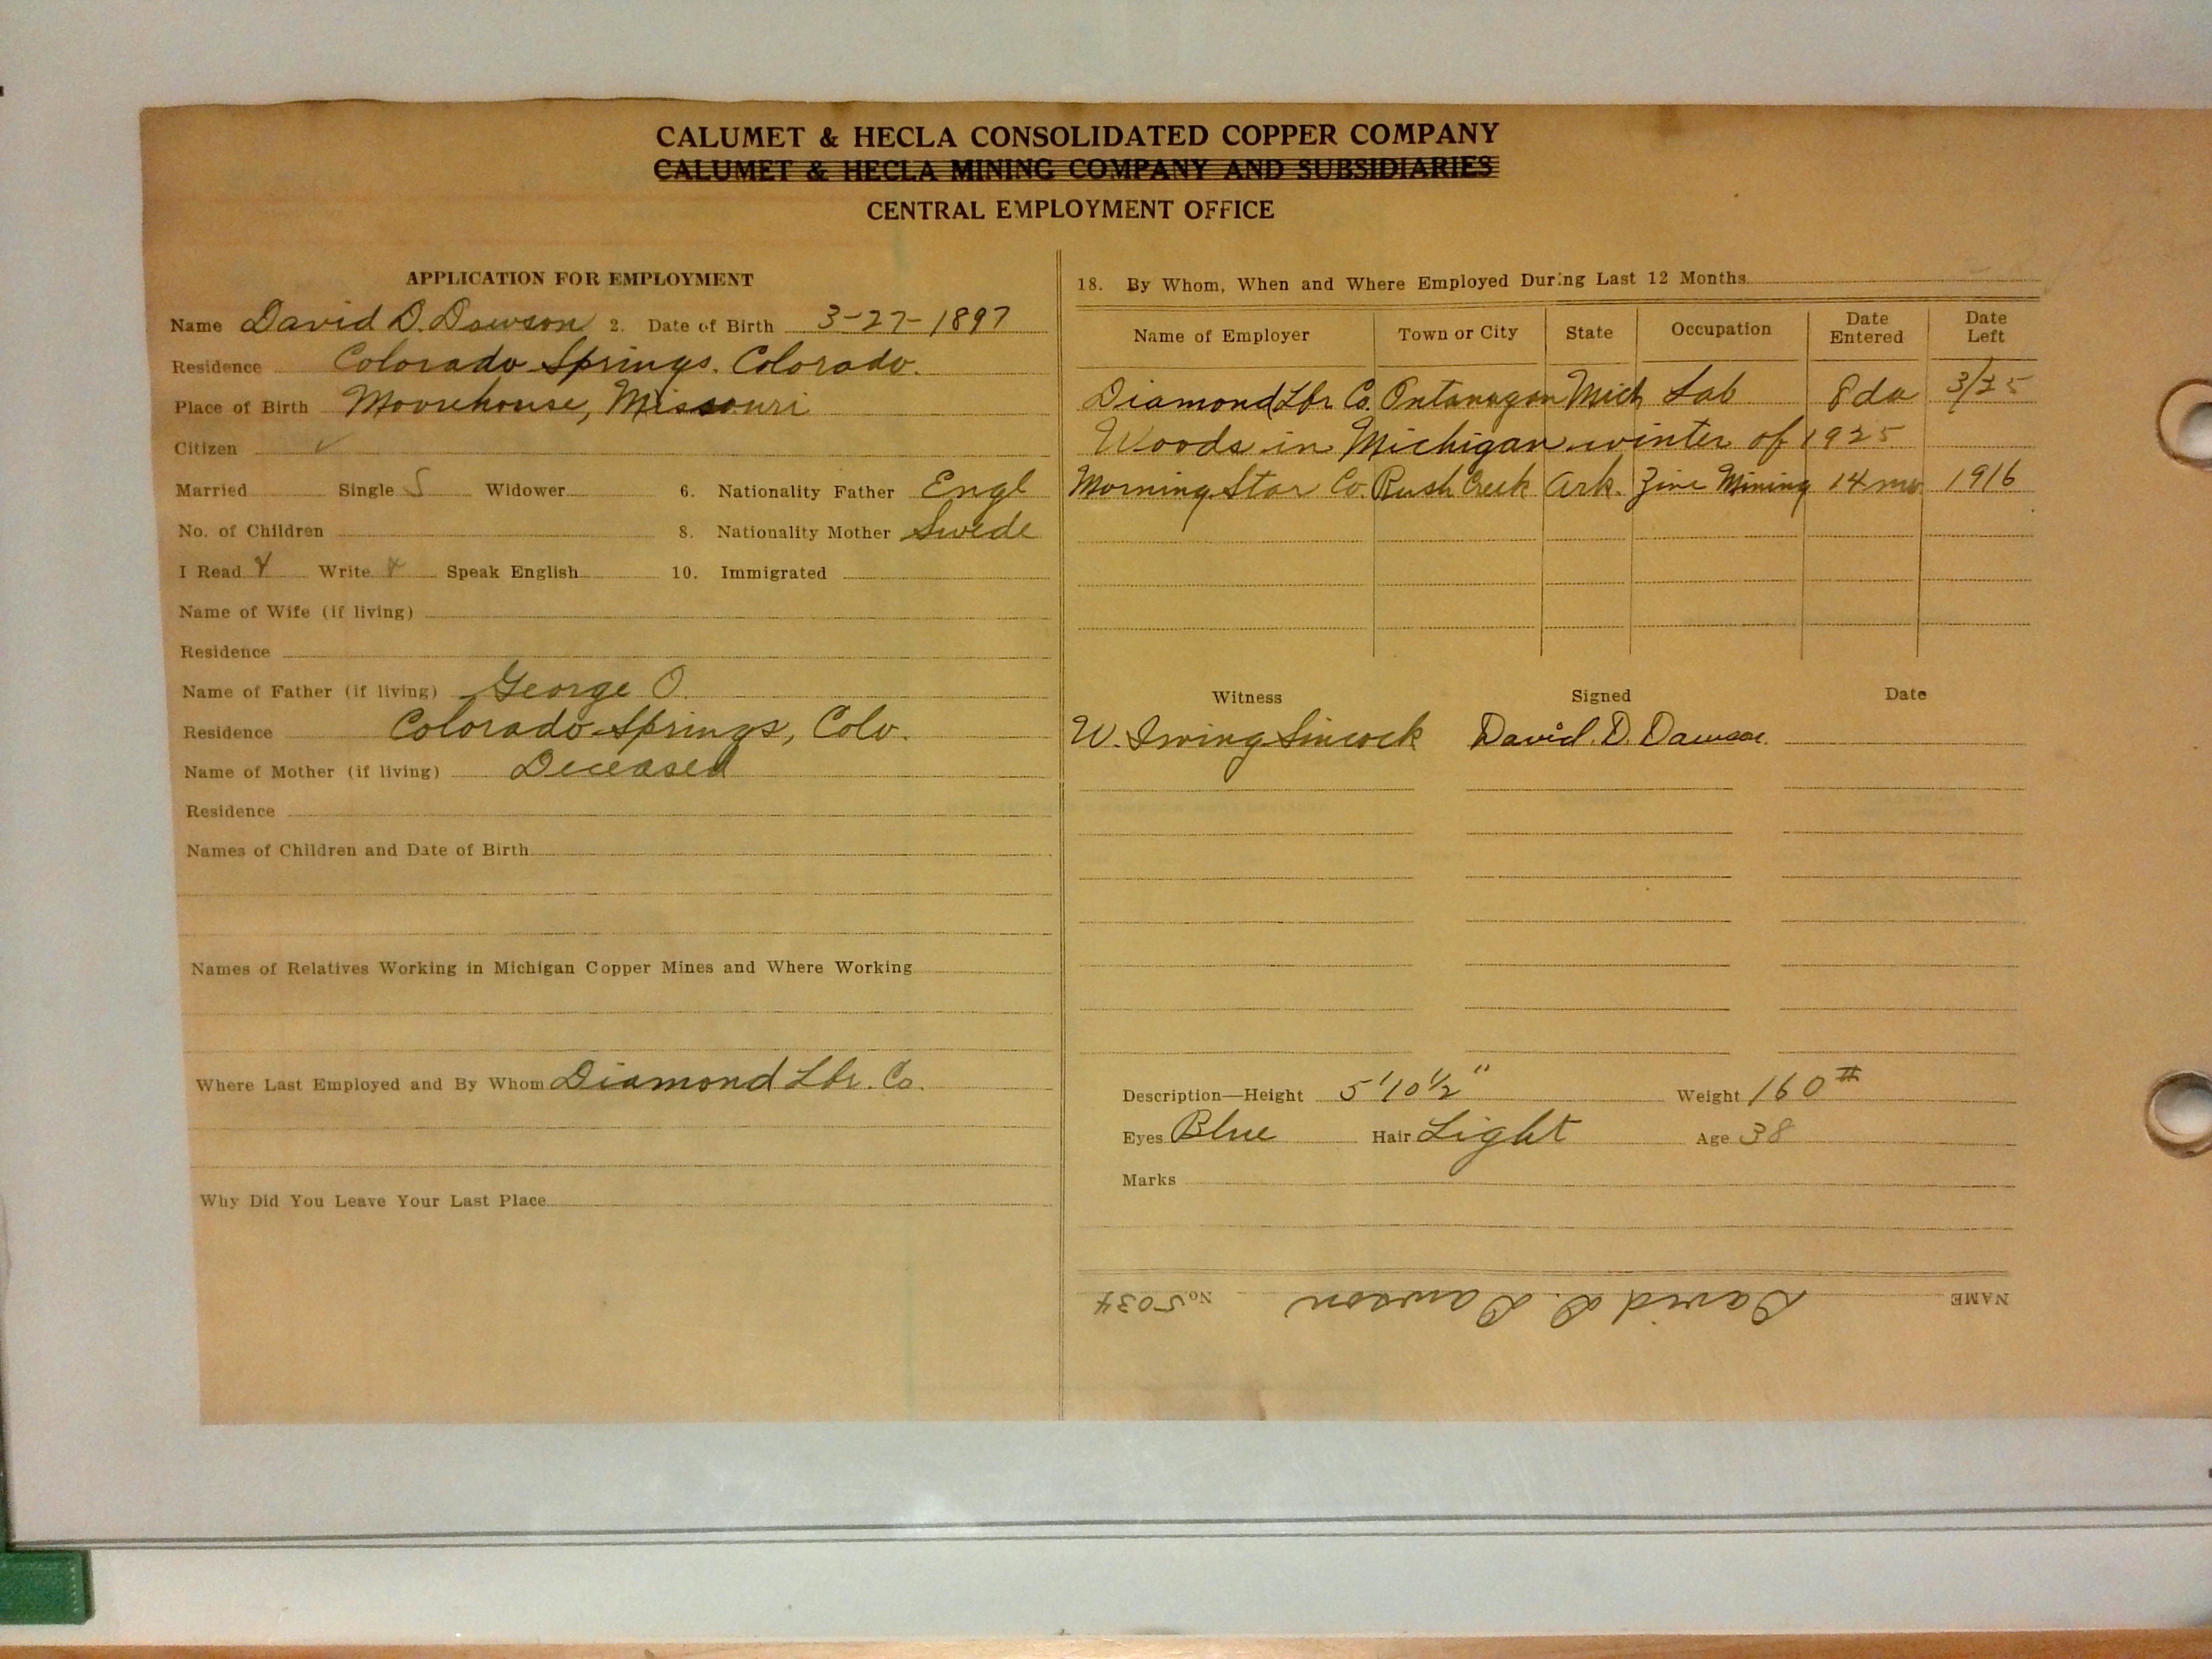 CALUMET & HECLA CONSOLIDATED COPPER COMPANY
CALUMET & HECLA MINING COMPANY AND SUBSIDIARIES
CENTRAL EMPLOYMENT OFFICE
APPLICATION FOR EMPLOYMENT
Name David D. Dawson 2. Date of Birth 3-27-1897
Residence Colorado Springs. Colorado.
Place of Birth Moorehouse, Missouri
Citizen ✓
Married Single S Widower 6. Nationality Father Engl
No. of Children 8. Nationality Mother Swede
I Read Y Write Y Speak English 10. Immigrated
Name of Wife (if living)
Residence
Name of Father (if living) George O.
Residence Colorado Springs, Colo.
Name of Mother (if living) Deceased
Residence
Names of Children and Date of Birth
Names of Relatives Working in Michigan Copper Mines and Where Working
Where Last Employed and By Whom Diamond Lbr. Co.
Why Did You Leave Your Last Place
18. By Whom, When and Where Employed During Last 12 Months
Name of Employer Town or City State Occupation Date Entered Date Left
Diamond Lbr. Co. Ontanogon Mich Lab 8 da 3/25
Woods in Michigan winter of 1925
Morning Star Co. Rush Creek Ark. Zinc Mining 14 mo. 1916
Witness Signed Date
W. Irving Sincock David. D. Dawson.
Description—Height 5'10½" Weight 160#
Eyes Blue Hair Light Age 38
Marks
NAME David D. Dawson No. 5034